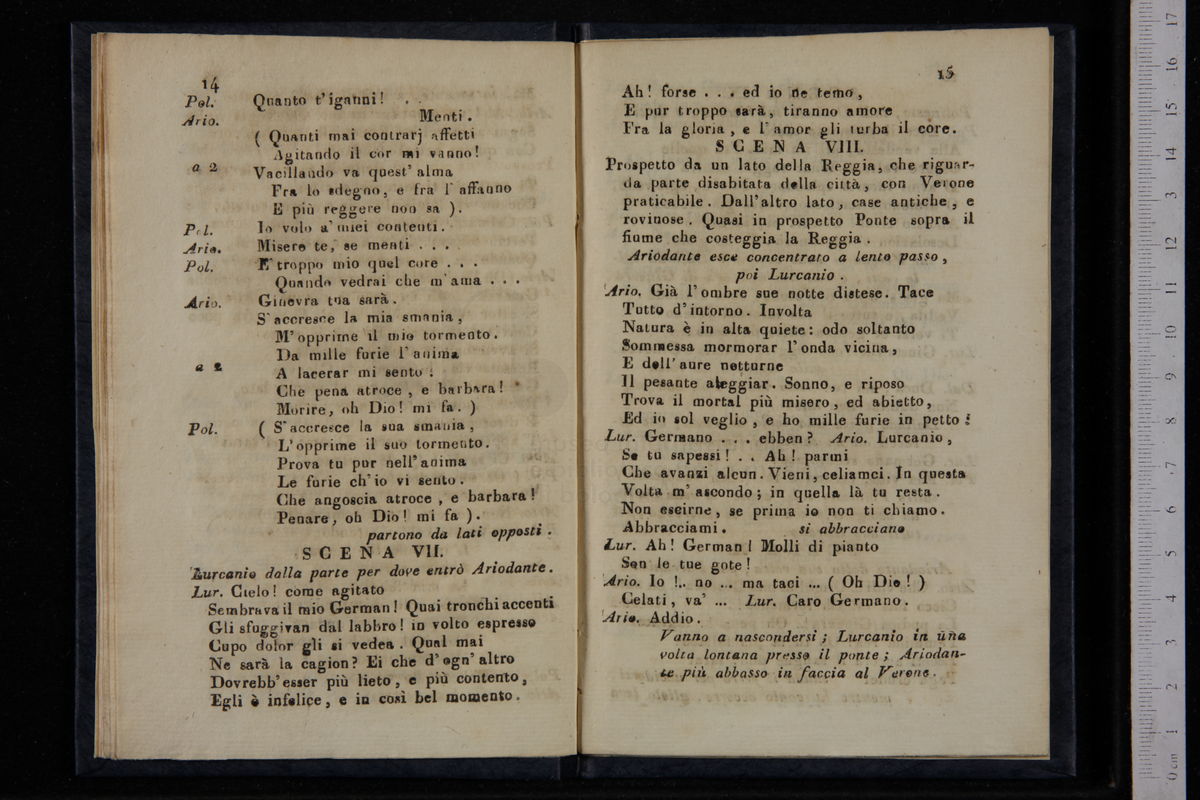 14
Pol. Quanto t'iganni! . .
Ario. Menti.
( Quanti mai contrarj affetti
Agitando il cor mi vanno!
a 2 Vacillando va quest' alma
Fra lo sdegno, e fra l' affanno
E più reggere non sa ).
Pol. Io volo a' miei contenti.
Ario. Misero te, se menti . . . .
Pol. E' troppo mio quel core . . .
Quando vedrai che m' ama . . .
Ario. Ginevra tua sarà.
S' accresce la mia smania,
M' opprime il mio tormento.
Da mille furie l' anima
a 2 A lacerar mi sento:
Che pena atroce, e barbara!
Morire, oh Dio! mi fa. )
Pol. ( S' accresce la sua smania,
L' opprime il suo tormento.
Prova tu pur nell' anima
Le furie ch' io vi sento.
Che angoscia atroce, e barbara!
Penare, oh Dio! mi fa ).
partono da lati opposti.
SCENA VII.
Lurcanio dalla parte per dove entrò Ariodante.
Lur. Cielo! come agitato
Sembrava il mio German! Quai tronchi accenti
Gli sfuggivan dal labbro! in volto espresso
Cupo dolor gli si vedea. Qual mai
Ne sarà la cagion? Ei che d' ogn' altro
Dovrebb' esser più lieto, e più contento,
Egli è infelice, e in così bel momento.
15
Ah! forse . . . ed io ne temo,
E pur troppo sarà, tiranno amore
Fra la gloria, e l' amor gli turba il core.
SCENA VIII.
Prospetto da un lato della Reggia, che riguar-
da parte disabitata della città, con Verone
praticabile. Dall' altro lato, case antiche, e
rovinose. Quasi in prospetto Ponte sopra il
fiume che costeggia la Reggia.
Ariodante esce concentrato a lento passo,
poi Lurcanio.
Ario. Già l' ombre sue notte distese. Tace
Tutto d' intorno. Involta
Natura è in alta quiete: odo soltanto
Sommessa mormorar l' onda vicina,
E dell' aure notturne
Il pesante aleggiar. Sonno, e riposo
Trova il mortal più misero, ed abietto,
Ed io sol veglio, e ho mille furie in petto!
Lur. Germano . . . ebben? Ario. Lurcanio,
Se tu sapessi! . . Ah! parmi
Che avanzi alcun. Vieni, celiamci. In questa
Volta m' ascondo; in quella là tu resta.
Non escirne, se prima io non ti chiamo.
Abbracciami. si abbracciano
Lur. Ah! German! Molli di pianto
Son le tue gote!
Ario. Io !.. no ... ma taci ... ( Oh Dio! )
Celati, va' ... Lur. Caro Germano.
Ario. Addio.
Vanno a nascondersi; Lurcanio in una
volta lontana presso il ponte; Ariodan-
te più abbasso in faccia al Verone.